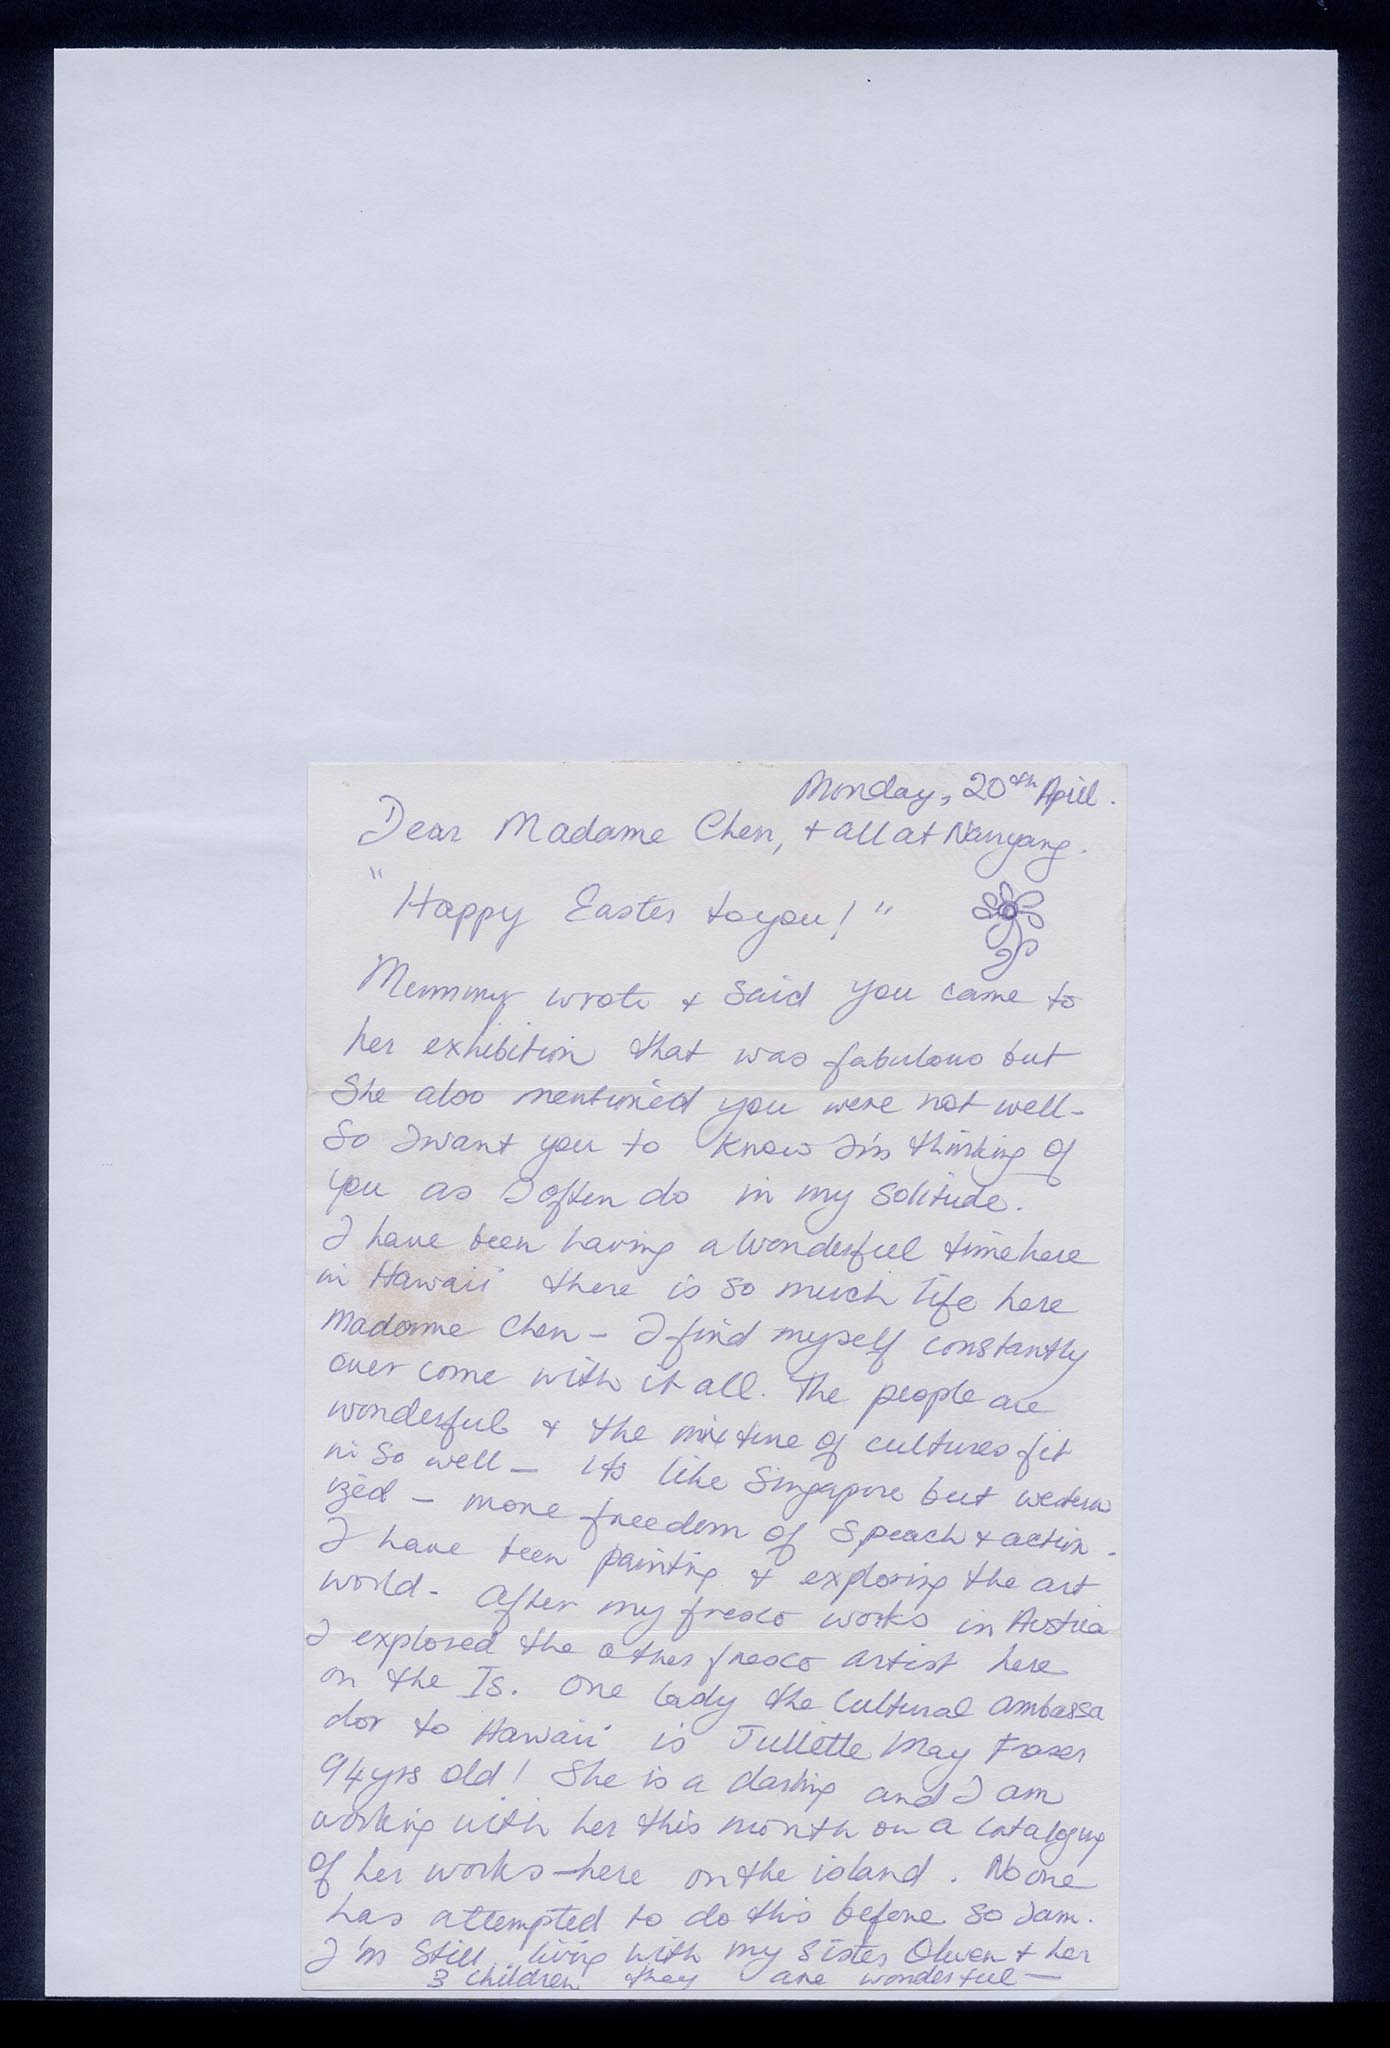 Monday, 20th April.
Dear Madame Chen, + all at Nanyang.
"Happy Easter to you!"
Mummy wrote + said you came to
her exhibition that was fabulous but
She also mentioned you were not well-
So I want you to know I'm thinking of
you as I often do in my solitude.
I have been having a wonderful time here
in Hawaii there is so much life here
Madame Chen - I find myself constantly
over come with it all. The people are
wonderful + the mixture of cultures fit
in so well - its like Singapore but western
ized - more freedom of speach + action.
I have been painting + exploring the art
world. After my fresco works in Austria
I explored the other fresco artist here
on the Is. One lady the Cultural ambassa
dor to Hawaii is Jullette May Fraser
94yrs old! She is a darling and I am
working with her this month on a
of her works-here on the island. No one
has attempted to do this before so I am.
I'm still living with my sister Olwen + her
3 children they are wonderful -